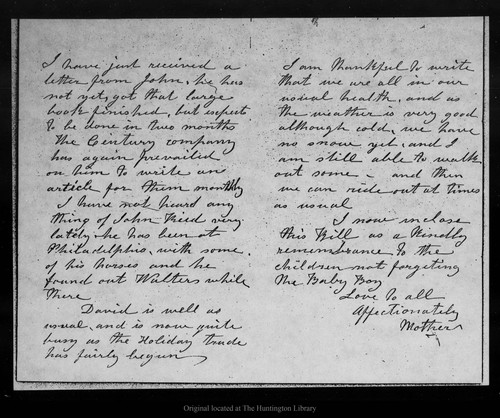 I have just received a
letter from John, he has
not yet, got that large
book finished, but expects
to be done in two months
The Century company
has again prevailed
on him to write an
article for them monthly
I have not heard any
thing of John Reid very
lately. he has been at
Philadelphia, with some
of his horses and he
found out Walters while
there
David is well as
usual, and is now quite
busy as the Holiday trade
has fairly begun
I am thankful to write
that we are all in our
usual health, and as
the weather is very good
although cold, we have
no snow yet, and I
am still able to walk
out some - and then
we can ride out at times
as usual
I now inclose
this Bill as a Kindly
remembrance to the
children not forgeting
the Baby Boy
Love to all
Affectionately
Mother
Original located at The Huntington Library